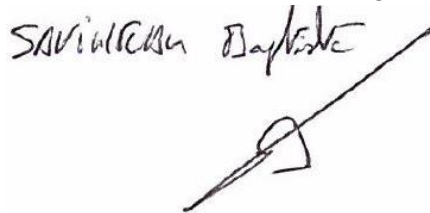 SAVINEAU Baptiste